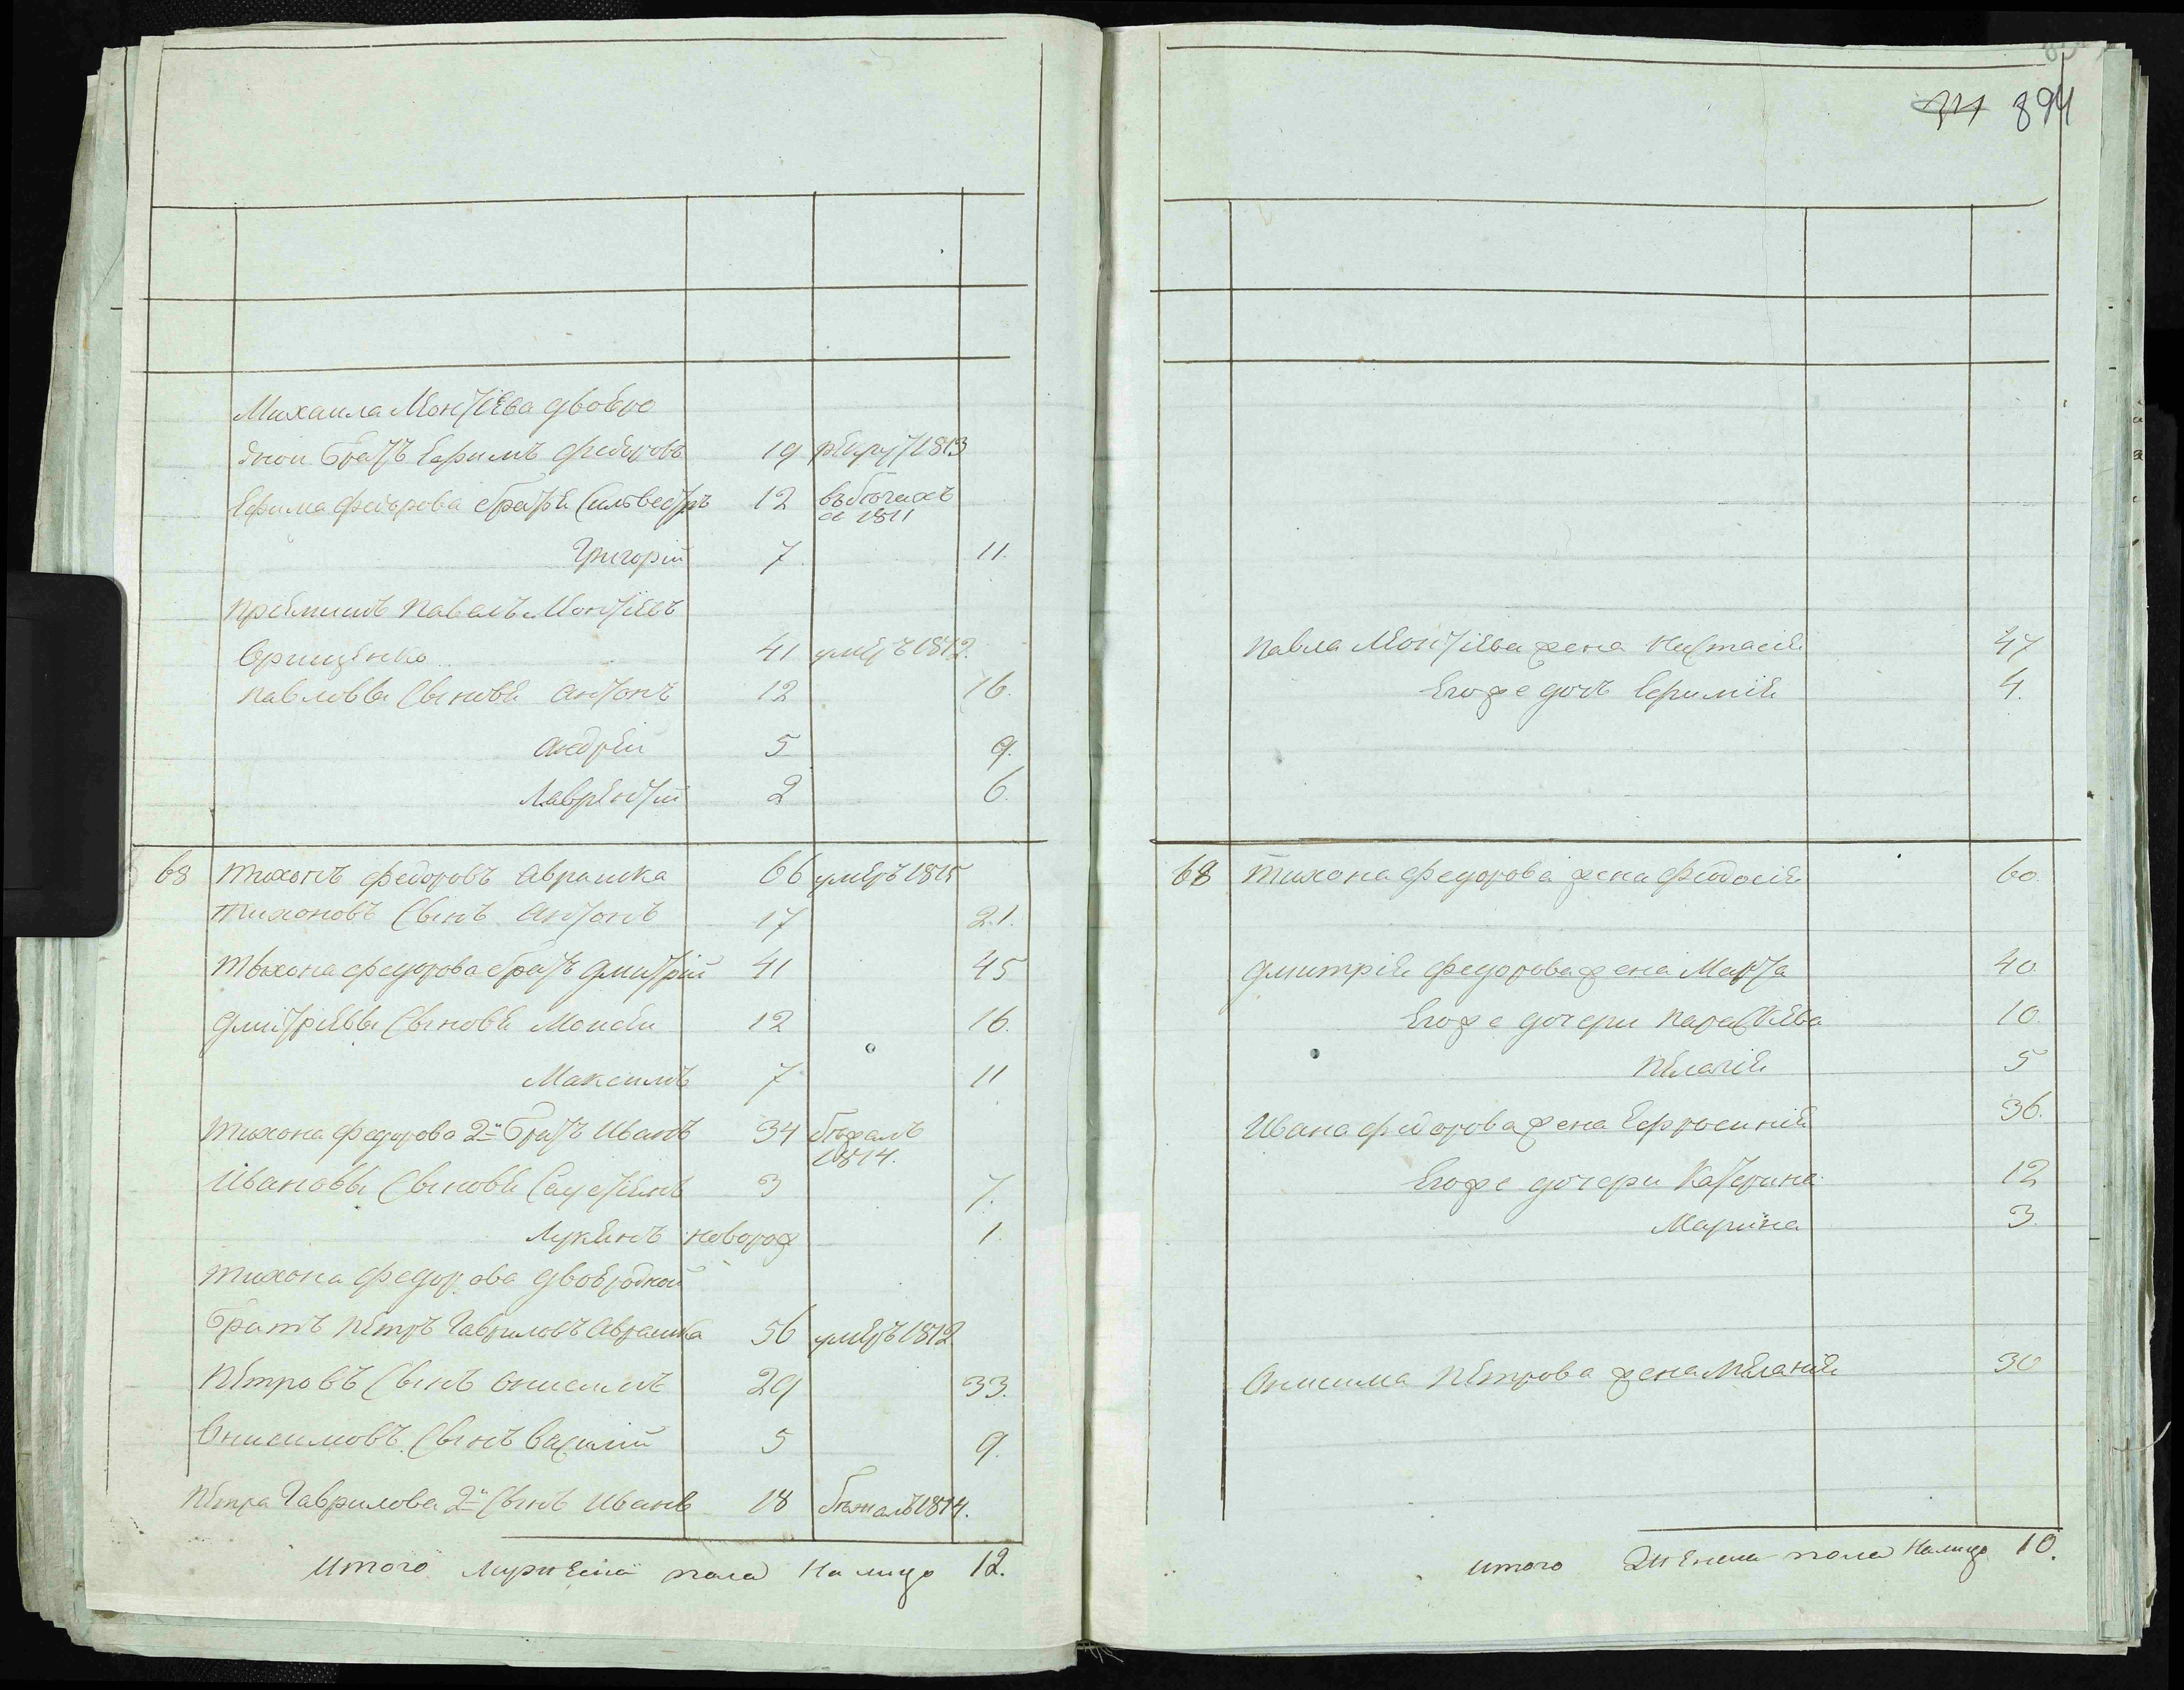 894
Михаила Монтіева двоюро
дной братъ Ефимъ Федоровъ 19 рекрут 1813
Ефима Федорова братья Сильвестръ 12 въ бегахъ
с 1811
Григорій 7 11.
Павелъ Монтіевъ
Грищенко 41 умеръ 1812.
Павловы сыновья Антонъ 12 16.
Андрей 5 9.
Лаврентій 2 6.
68 Тихонъ Федоровъ Аврамка 66 умеръ 1815
Тихоновъ сынъ Антонъ 17 21.
Тихона Федорова братъ Дмитрій 41 45
Дмитріевы сыновья Моисей 12 16.
Максимъ 7 11
Тихона Федорова 2й братъ Иванъ 34 бежалъ
1814.
Ивановы сыновья 3 7.
Лукьянъ новорож 1.
Тихона Федорова двоюродной
братъ Петръ Гавриловъ Аврамка 56 умеръ 1812.
Петровъ сынъ Онисимъ 29 33.
Онисимовъ сынъ Василій 5 9.
Петра Гаврилова 2й сынъ Иванъ 18 бежалъ 1814.
Итого мужеска пола на лицо 12.
Павла Монтіева жена Настасія 47
Его же дочь Ефимія 4.
68 Тихона Федорова жена Феодосія 60.
Дмитрія Федорова жена Марта 40.
Его же дочери Параскева 10.
Пелагія 5
Ивана Федорова жена Ефросинія 36.
Его же дочери Катерина 12
Марина 3.
Онисима Петрова жена Меланія 30
Итого женска пола на лицо 10.